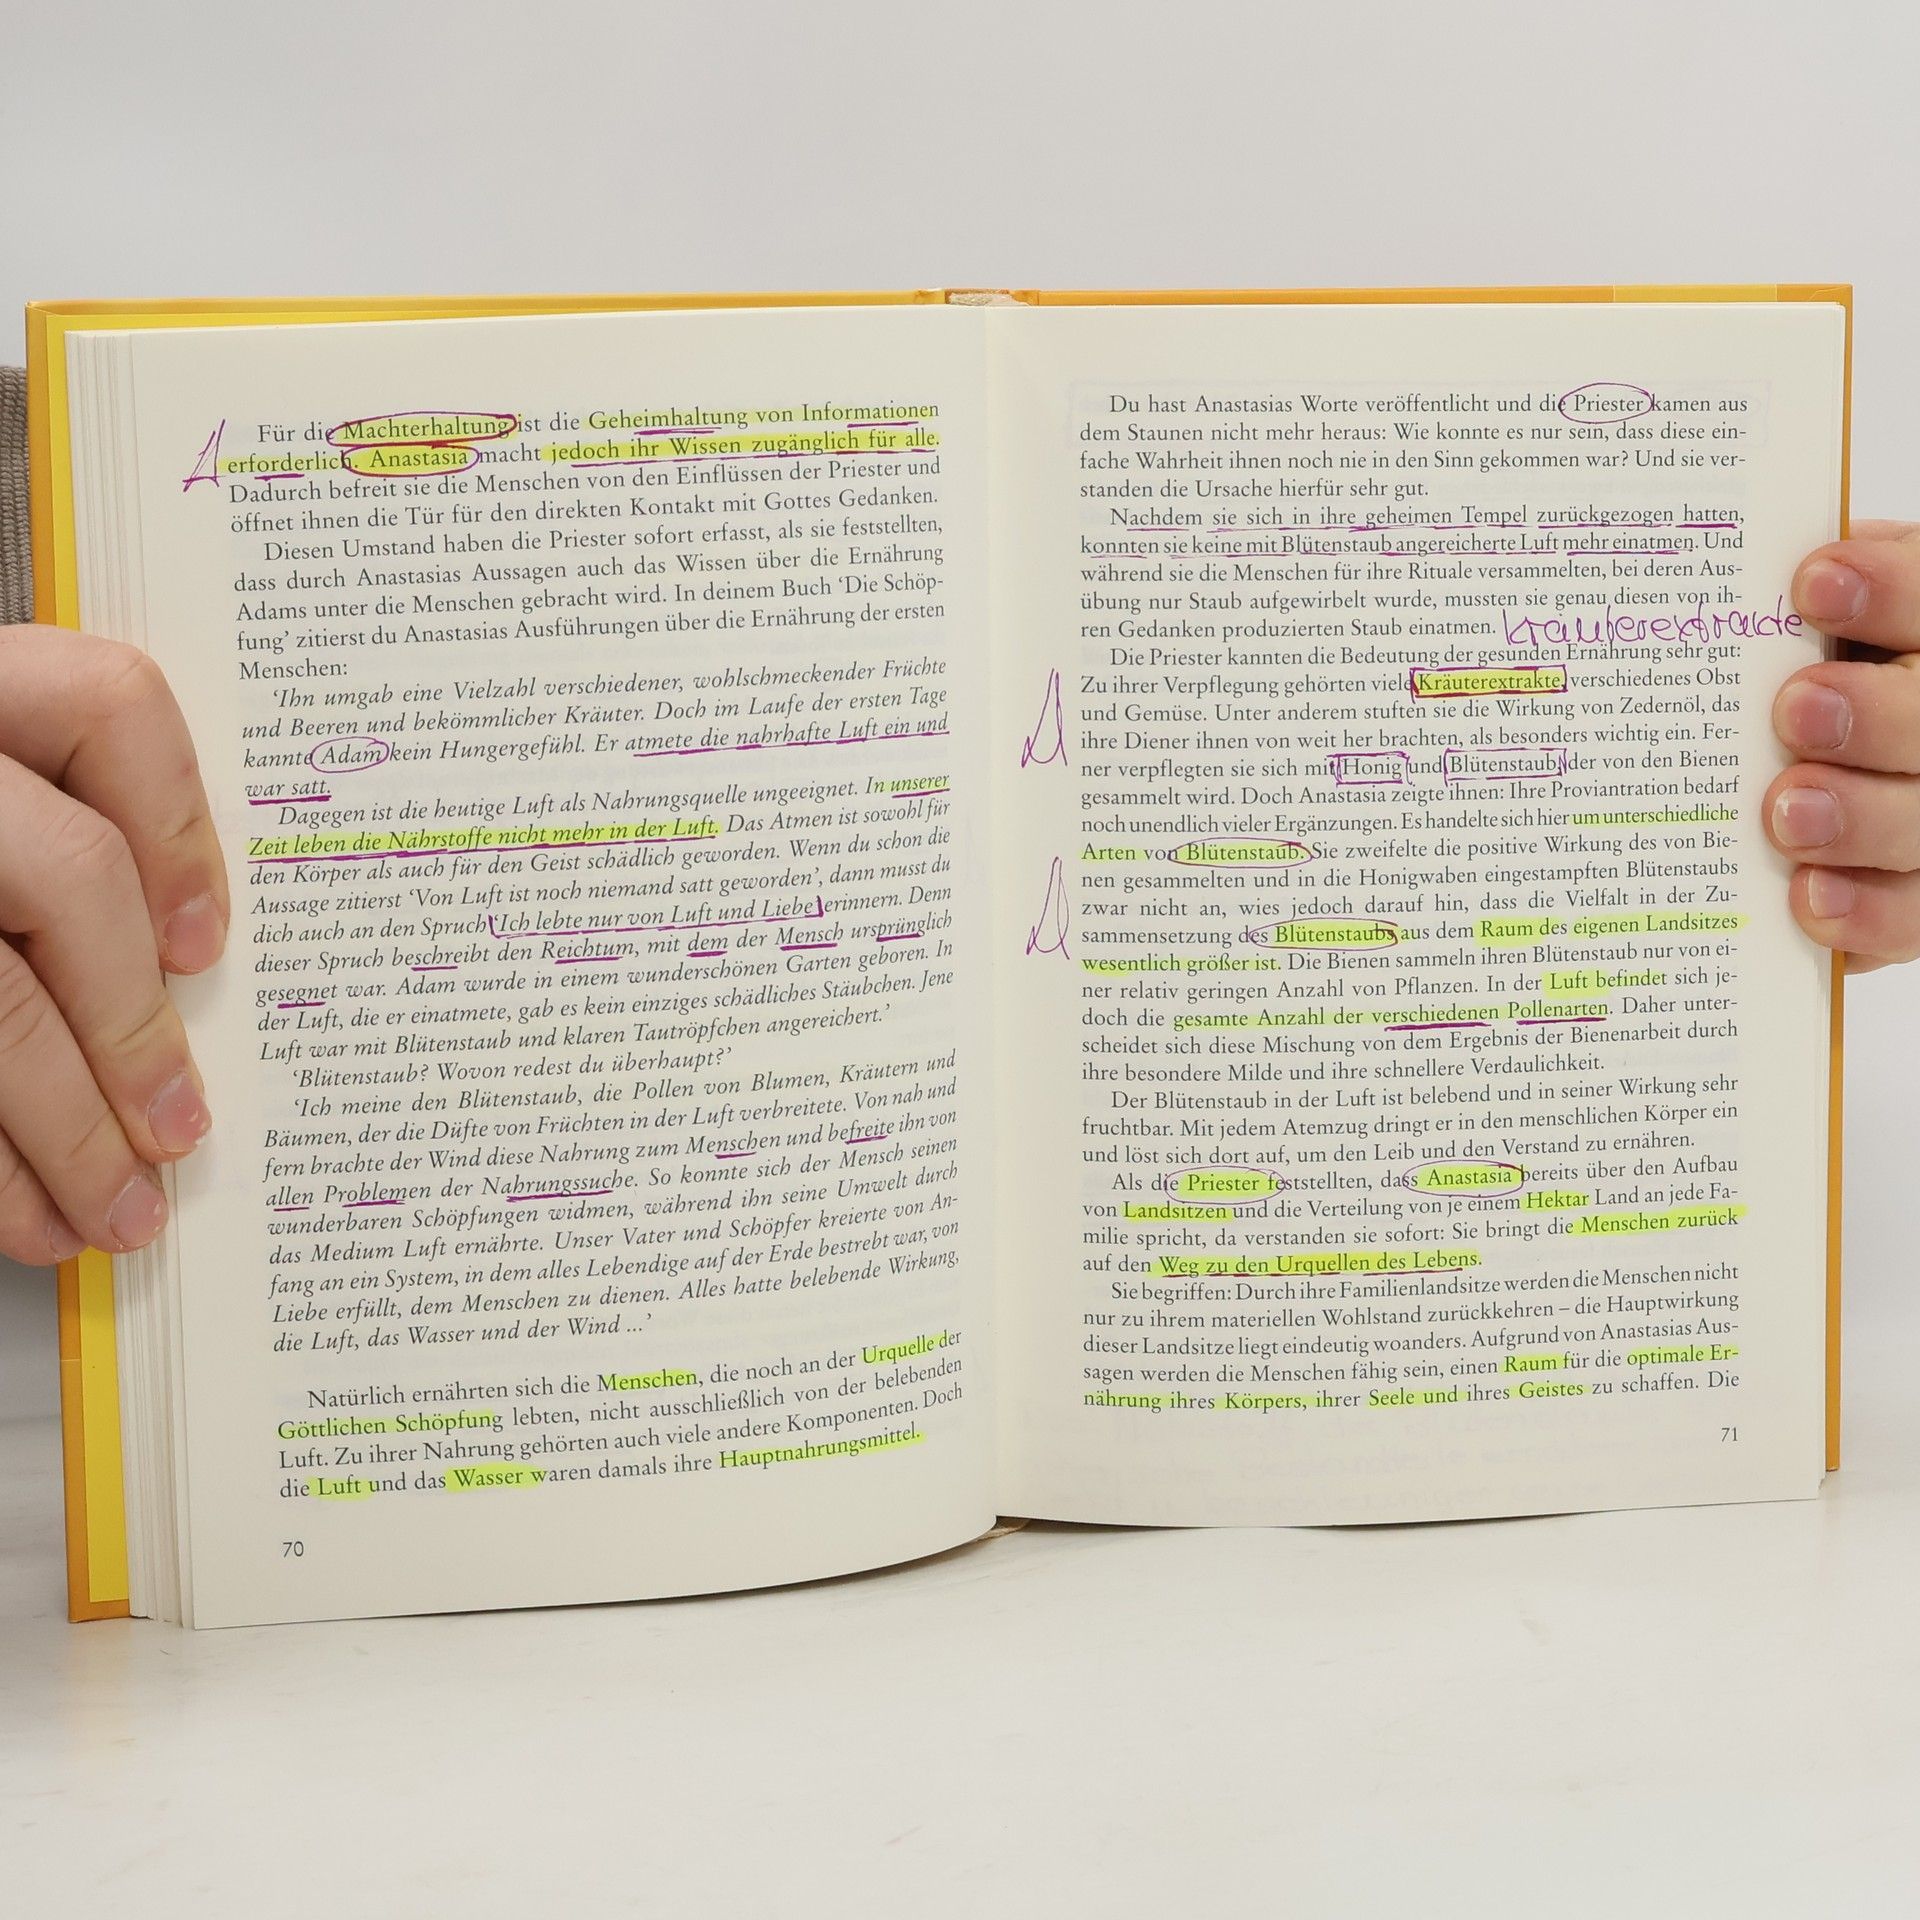 Für die Machterhaltung ist die Geheimhaltung von Informationen
erforderlich. Anastasia macht jedoch ihr Wissen zugänglich für alle.
Dadurch befreit sie die Menschen von den Einflüssen der Priester und
öffnet ihnen die Tür für den direkten Kontakt mit Gottes Gedanken.
Diesen Umstand haben die Priester sofort erfasst, als sie feststellten,
dass durch Anastasias Aussagen auch das Wissen über die Ernährung
Adams unter die Menschen gebracht wird. In deinem Buch ‘Die Schöp-
fung’ zitierst du Anastasias Ausführungen über die Ernährung der ersten
Menschen:
‘Ihn umgab eine Vielzahl verschiedener, wohlschmeckender Früchte
und Beeren und bekömmlicher Kräuter. Doch im Laufe der ersten Tage
kannte Adam kein Hungergefühl. Er atmete die nahrhafte Luft ein und
war satt.
Dagegen ist die heutige Luft als Nahrungsquelle ungeeignet. In unserer
Zeit leben die Nährstoffe nicht mehr in der Luft. Das Atmen ist sowohl für
den Körper als auch für den Geist schädlich geworden. Wenn du schon die
Aussage zitierst ‘Von Luft ist noch niemand satt geworden’, dann musst du
dich auch an den Spruch ‘Ich lebte nur von Luft und Liebe’ erinnern. Denn
dieser Spruch beschreibt den Reichtum, mit dem der Mensch ursprünglich
gesegnet war. Adam wurde in einem wunderschönen Garten geboren. In
der Luft, die er einatmete, gab es kein einziges schädliches Stäubchen. Jene
Luft war mit Blütenstaub und klaren Tautröpfchen angereichert.’
‘Blütenstaub? Wovon redest du überhaupt?’
‘Ich meine den Blütenstaub, die Pollen von Blumen, Kräutern und
Bäumen, der die Düfte von Früchten in der Luft verbreitete. Von nah und
fern brachte der Wind diese Nahrung zum Menschen und befreite ihn von
allen Problemen der Nahrungssuche. So konnte sich der Mensch seinen
wunderbaren Schöpfungen widmen, während ihn seine Umwelt durch
das Medium Luft ernährte. Unser Vater und Schöpfer kreierte von An-
fang an ein System, in dem alles Lebendige auf der Erde bestrebt war, von
Liebe erfüllt, dem Menschen zu dienen. Alles hatte belebende Wirkung,
die Luft, das Wasser und der Wind ...’
Natürlich ernährten sich die Menschen, die noch an der Urquelle der
Göttlichen Schöpfung lebten, nicht ausschließlich von der belebenden
Luft. Zu ihrer Nahrung gehörten auch viele andere Komponenten. Doch
die Luft und das Wasser waren damals ihre Hauptnahrungsmittel.
70
Du hast Anastasias Worte veröffentlicht und die Priester kamen aus
dem Staunen nicht mehr heraus: Wie konnte es nur sein, dass diese ein-
fache Wahrheit ihnen noch nie in den Sinn gekommen war? Und sie ver-
standen die Ursache hierfür sehr gut.
Nachdem sie sich in ihre geheimen Tempel zurückgezogen hatten,
konnten sie keine mit Blütenstaub angereicherte Luft mehr einatmen. Und
während sie die Menschen für ihre Rituale versammelten, bei deren Aus-
übung nur Staub aufgewirbelt wurde, mussten sie genau diesen von ih-
ren Gedanken produzierten Staub einatmen. Kräuterextrakte
Die Priester kannten die Bedeutung der gesunden Ernährung sehr gut:
Zu ihrer Verpflegung gehörten viele Kräuterextrakte, verschiedenes Obst
und Gemüse. Unter anderem stuften sie die Wirkung von Zedernöl, das
ihre Diener ihnen von weit her brachten, als besonders wichtig ein. Fer-
ner verpflegten sie sich mit Honig und Blütenstaub, der von den Bienen
gesammelt wird. Doch Anastasia zeigte ihnen: Ihre Proviantration bedarf
noch unendlich vieler Ergänzungen. Es handelte sich hier um unterschiedliche
Arten von Blütenstaub. Sie zweifelte die positive Wirkung des von Bie-
nen gesammelten und in die Honigwaben eingestampften Blütenstaubs
zwar nicht an, wies jedoch darauf hin, dass die Vielfalt in der Zu-
sammensetzung des Blütenstaubs aus dem Raum des eigenen Landsitzes
wesentlich größer ist. Die Bienen sammeln ihren Blütenstaub nur von ei-
ner relativ geringen Anzahl von Pflanzen. In der Luft befindet sich je-
doch die gesamte Anzahl der verschiedenen Pollenarten. Daher unter-
scheidet sich diese Mischung von dem Ergebnis der Bienenarbeit durch
ihre besondere Milde und ihre schnellere Verdaulichkeit.
Der Blütenstaub in der Luft ist belebend und in seiner Wirkung sehr
fruchtbar. Mit jedem Atemzug dringt er in den menschlichen Körper ein
und löst sich dort auf, um den Leib und den Verstand zu ernähren.
Als die Priester feststellten, dass Anastasia bereits über den Aufbau
von Landsitzen und die Verteilung von je einem Hektar Land an jede Fa-
milie spricht, da verstanden sie sofort: Sie bringt die Menschen zurück
auf den Weg zu den Urquellen des Lebens.
Sie begriffen: Durch ihre Familienlandsitze werden die Menschen nicht
nur zu ihrem materiellen Wohlstand zurückkehren – die Hauptwirkung
dieser Landsitze liegt eindeutig woanders. Aufgrund von Anastasias Aus-
sagen werden die Menschen fähig sein, einen Raum für die optimale Er-
nährung ihres Körpers, ihrer Seele und ihres Geistes zu schaffen. Die
71